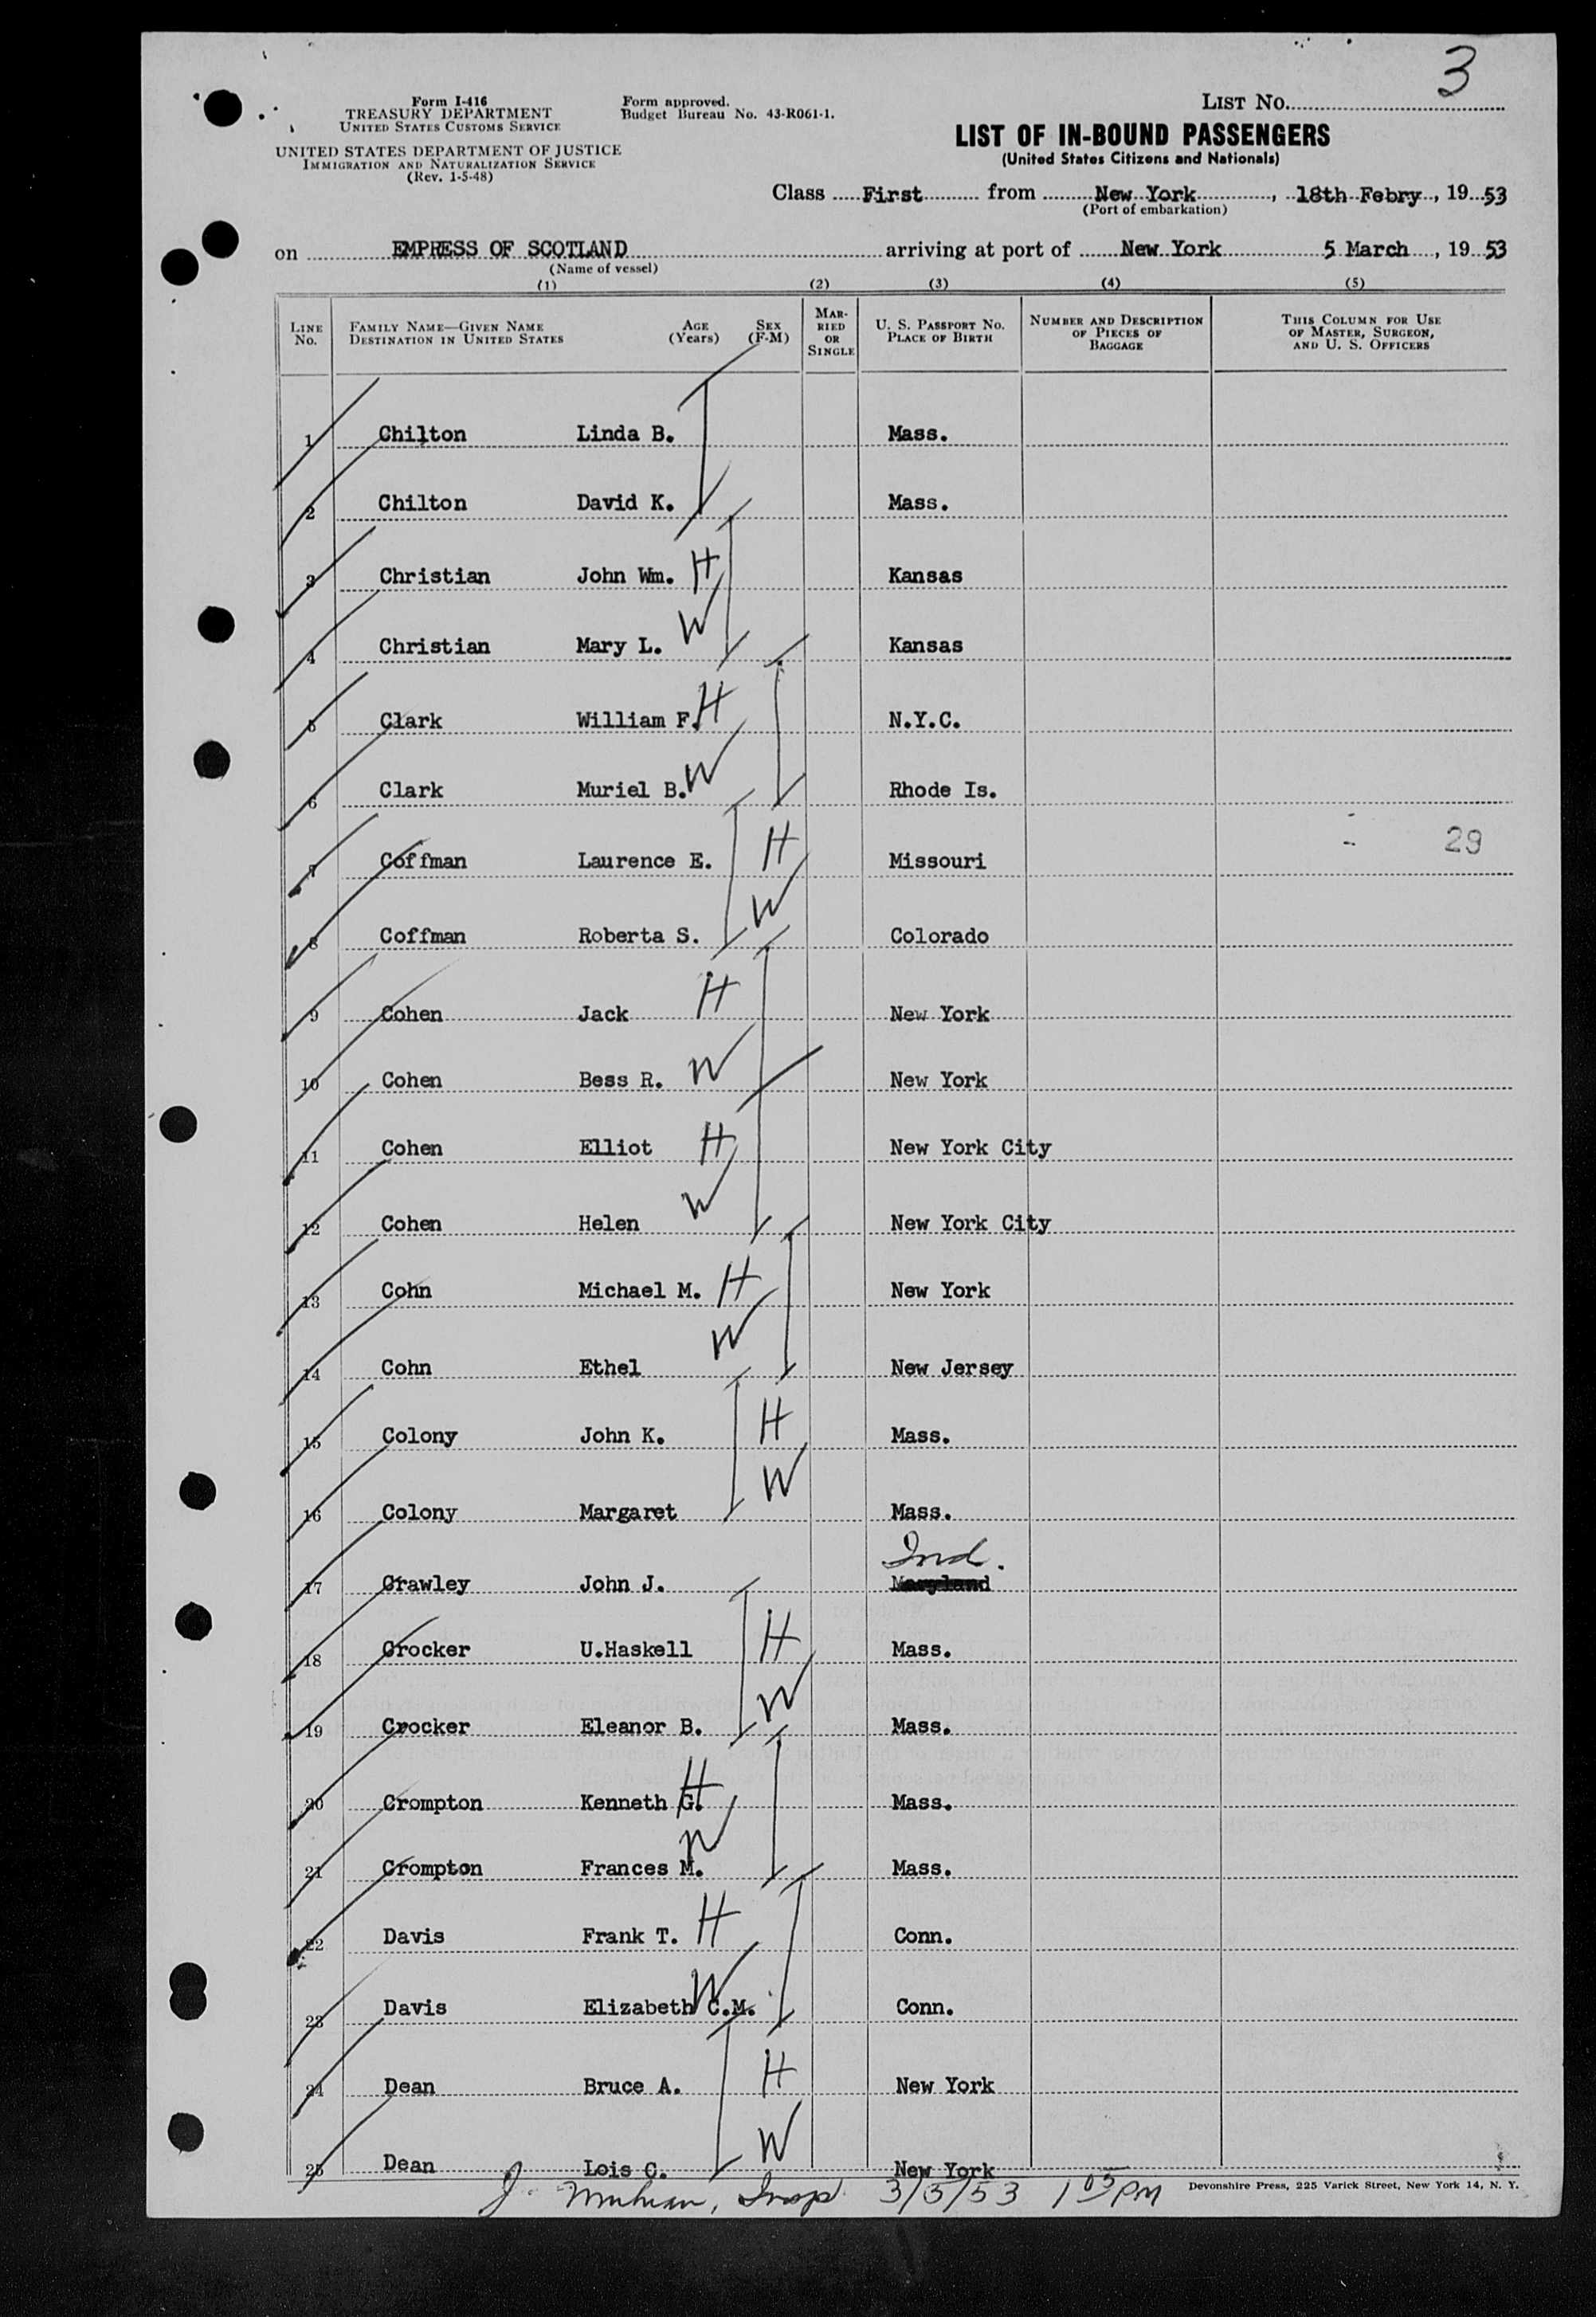 3
Form I-416
TREASURY DEPARTMENT
UNITED STATES CUSTOMS SERVICE
UNITED STATES DEPARTMENT OF JUSTICE
IMMIGRATION AND NATURALIZATION SERVICE
(Rev. 1-5-48)
Form approved.
Budget Bureau No. 43-R061-1.
LIST NO.
LIST OF IN-BOUND PASSENGERS
(United States Citizens and Nationals)
Class First from New York, 18th Febry, 19 53
(Port of embarkation)
on EMPRESS OF SCOTLAND arriving at port of New York 5 March, 19 53
(Name of vessel)
(1) (2) (3) (4) (5)
LINE NO. FAMILY NAME—GIVEN NAME DESTINATION IN UNITED STATES AGE (Years) SEX (F-M) MARRIED OR SINGLE U. S. PASSPORT NO. PLACE OF BIRTH NUMBER AND DESCRIPTION OF PIECES OF BAGGAGE THIS COLUMN FOR USE OF MASTER, SURGEON, AND U. S. OFFICERS
1 Chilton Linda B. Mass.
2 Chilton David K. Mass.
3 Christian John Wm. H Kansas
4 Christian Mary L. W Kansas
5 Clark William F. H N.Y.C.
6 Clark Muriel B. W Rhode Is.
7 Coffman Laurence E. H Missouri 29
8 Coffman Roberta S. W Colorado
9 Cohen Jack H New York
10 Cohen Bess R. W New York
11 Cohen Elliot H New York City
12 Cohen Helen W New York City
13 Cohn Michael M. H New York
14 Cohn Ethel W New Jersey
15 Colony John K. H Mass.
16 Colony Margaret W Mass.
Ind.
17 Crawley John J. Maryland
18 Crocker U.Haskell H Mass.
19 Crocker Eleanor B. W Mass.
20 Crompton Kenneth G. H Mass.
21 Crompton Frances M. W Mass.
22 Davis Frank T. H Conn.
23 Davis Elizabeth C.M. W Conn.
24 Dean Bruce A. H New York
25 Dean Lois C. W New York
J. Insp. 3/5/53 1 05 PM
Devonshire Press, 225 Varick Street, New York 14, N. Y.